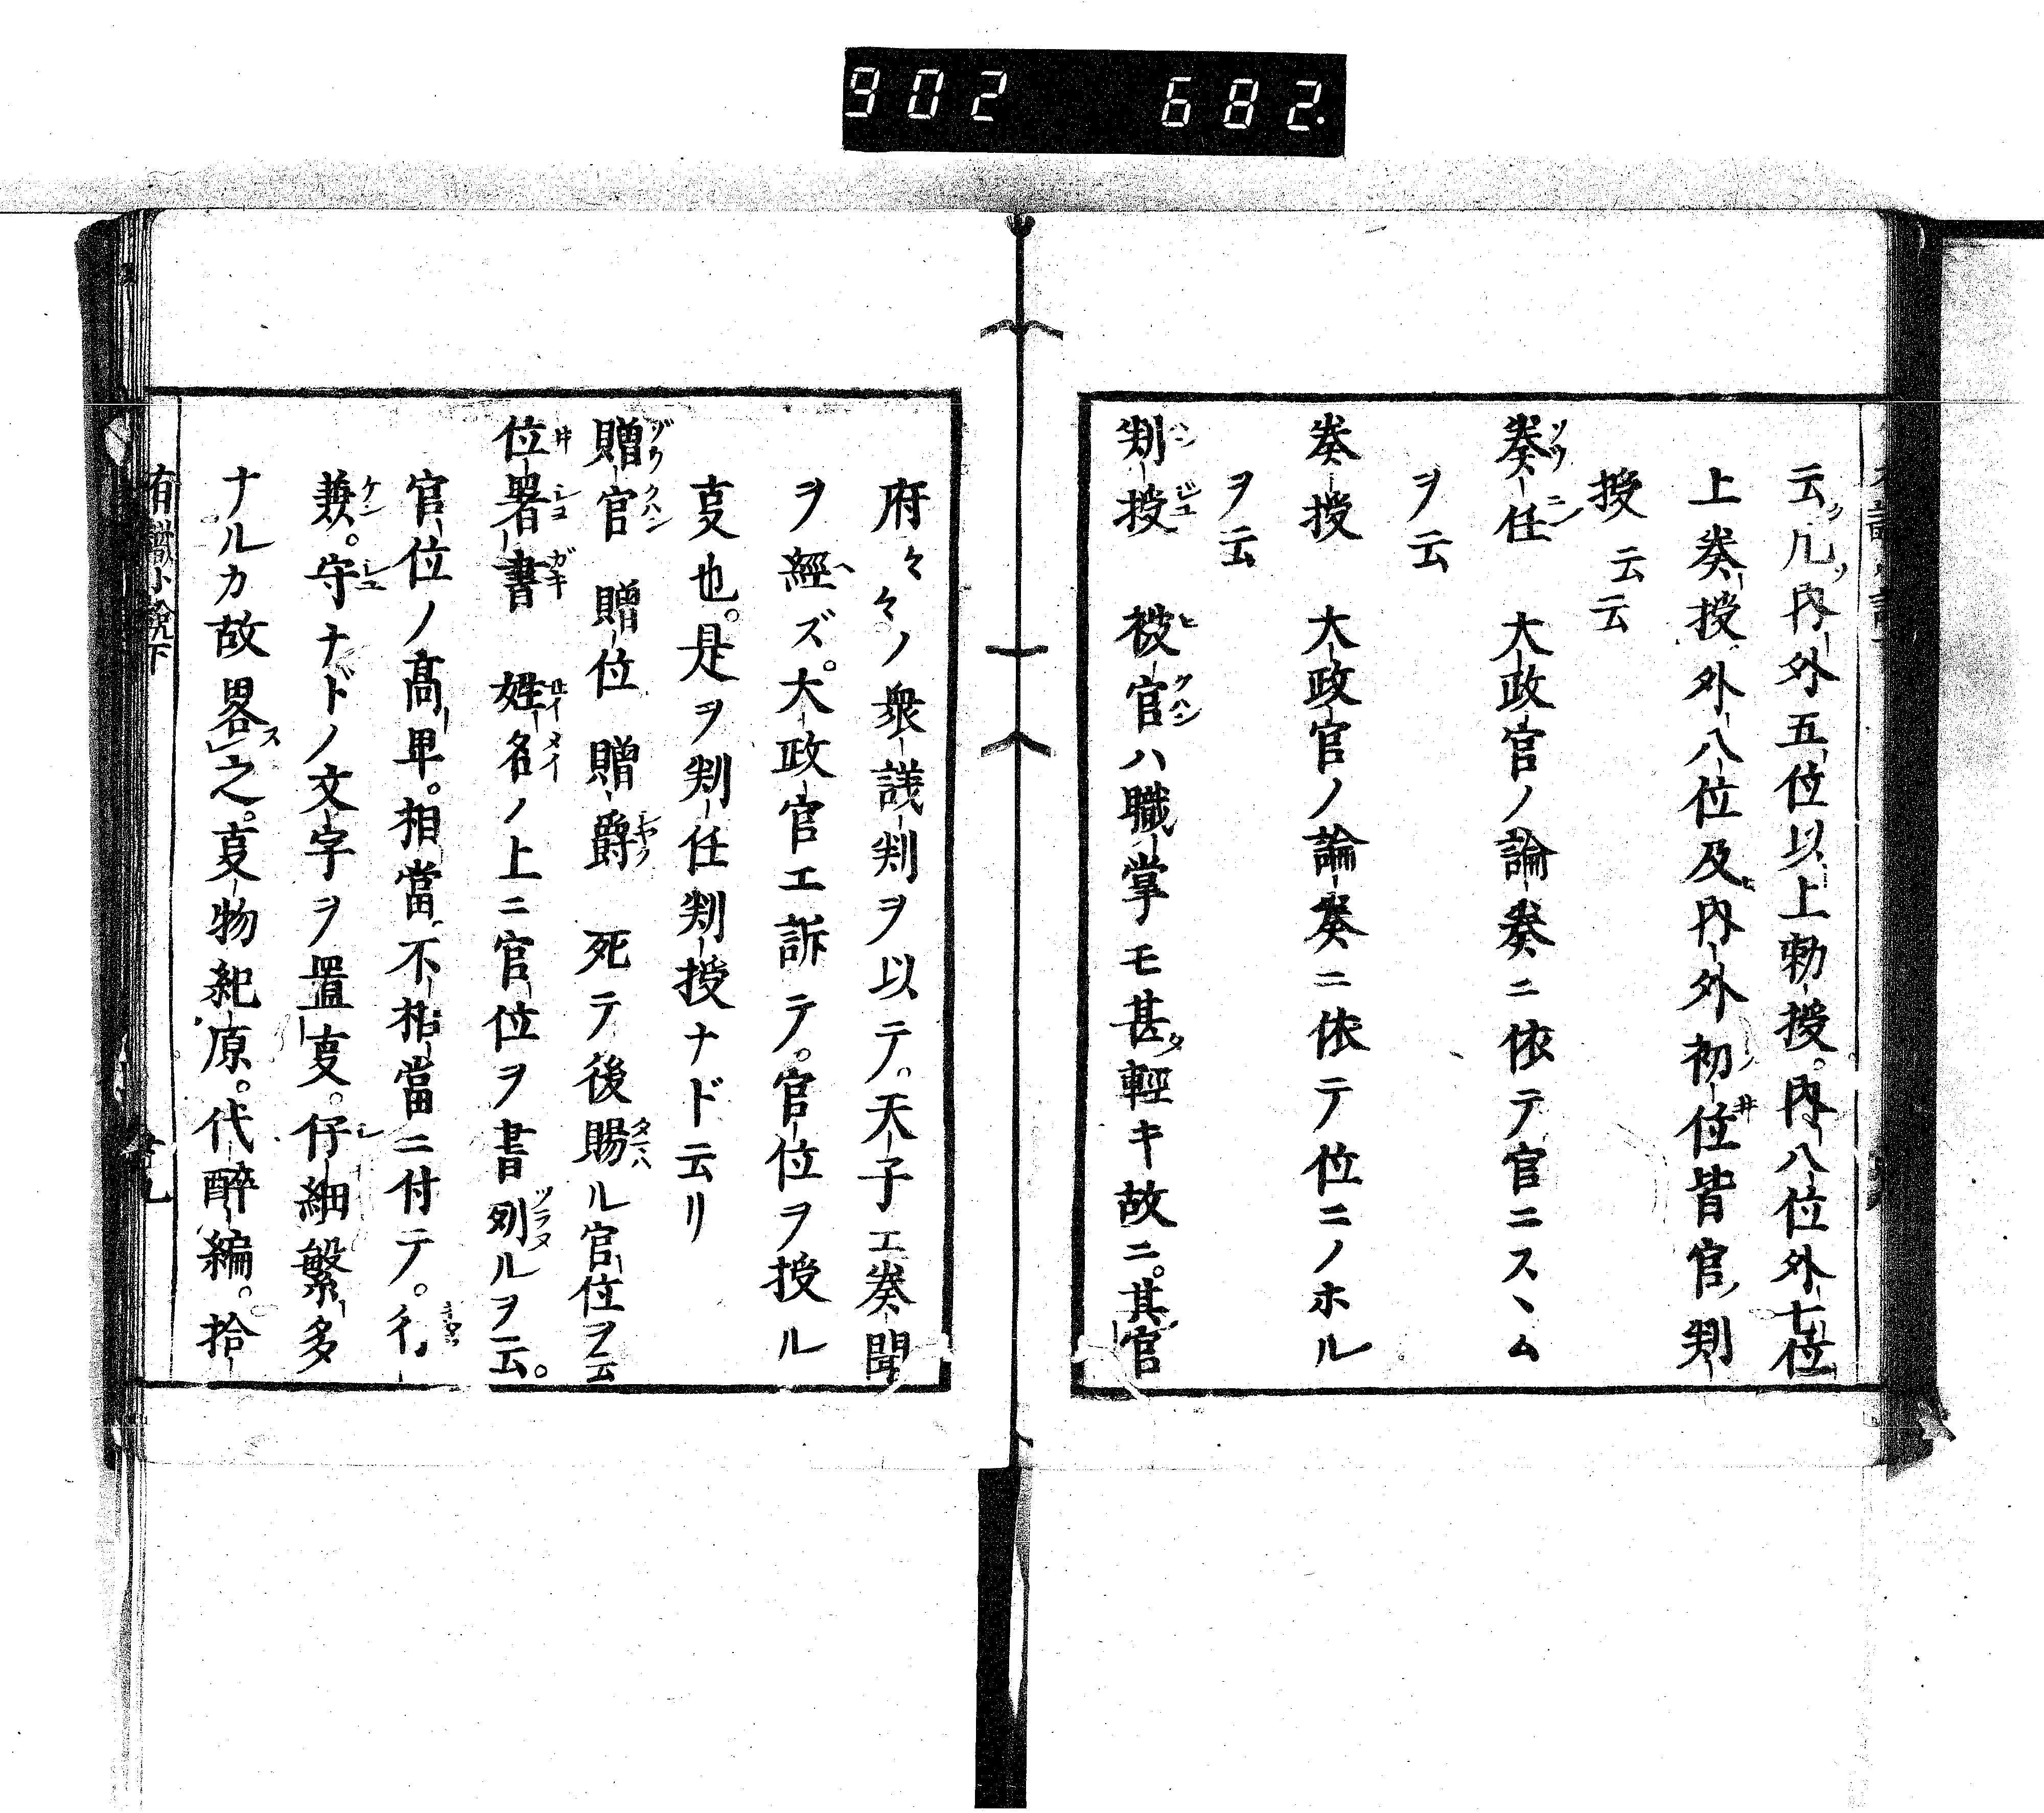 902 682.
云凡内外五位以上勅授。内八位外七位
上奏授外八位及内外初位皆官判
授云云
奏任 大政官ノ論奏ニ依テ官ニスヽム
ヲ云
奏授 大政官ノ論奏ニ依テ位ニノホル
ヲ云
判授 被官ハ職掌モ甚輕キ故ニ。其官
府々々ノ衆議判ヲ以テ。天子エ奏聞
ヲ經ズ。大政官エ訴テ。官位ヲ授ル
叓也。是ヲ判任判授ナド云リ
贈官 贈位 贈爵 死テ後賜ル官位ヲ云
位署書 姓名ノ上ニ官位ヲ書列ルヲ云。
官位ノ高卑。相當不相當ニ付テ。行
兼。守ナドノ文字ヲ置叓。仔細繁多
ナルカ故畧之。叓物紀原。代醉編。拾
有職小說下